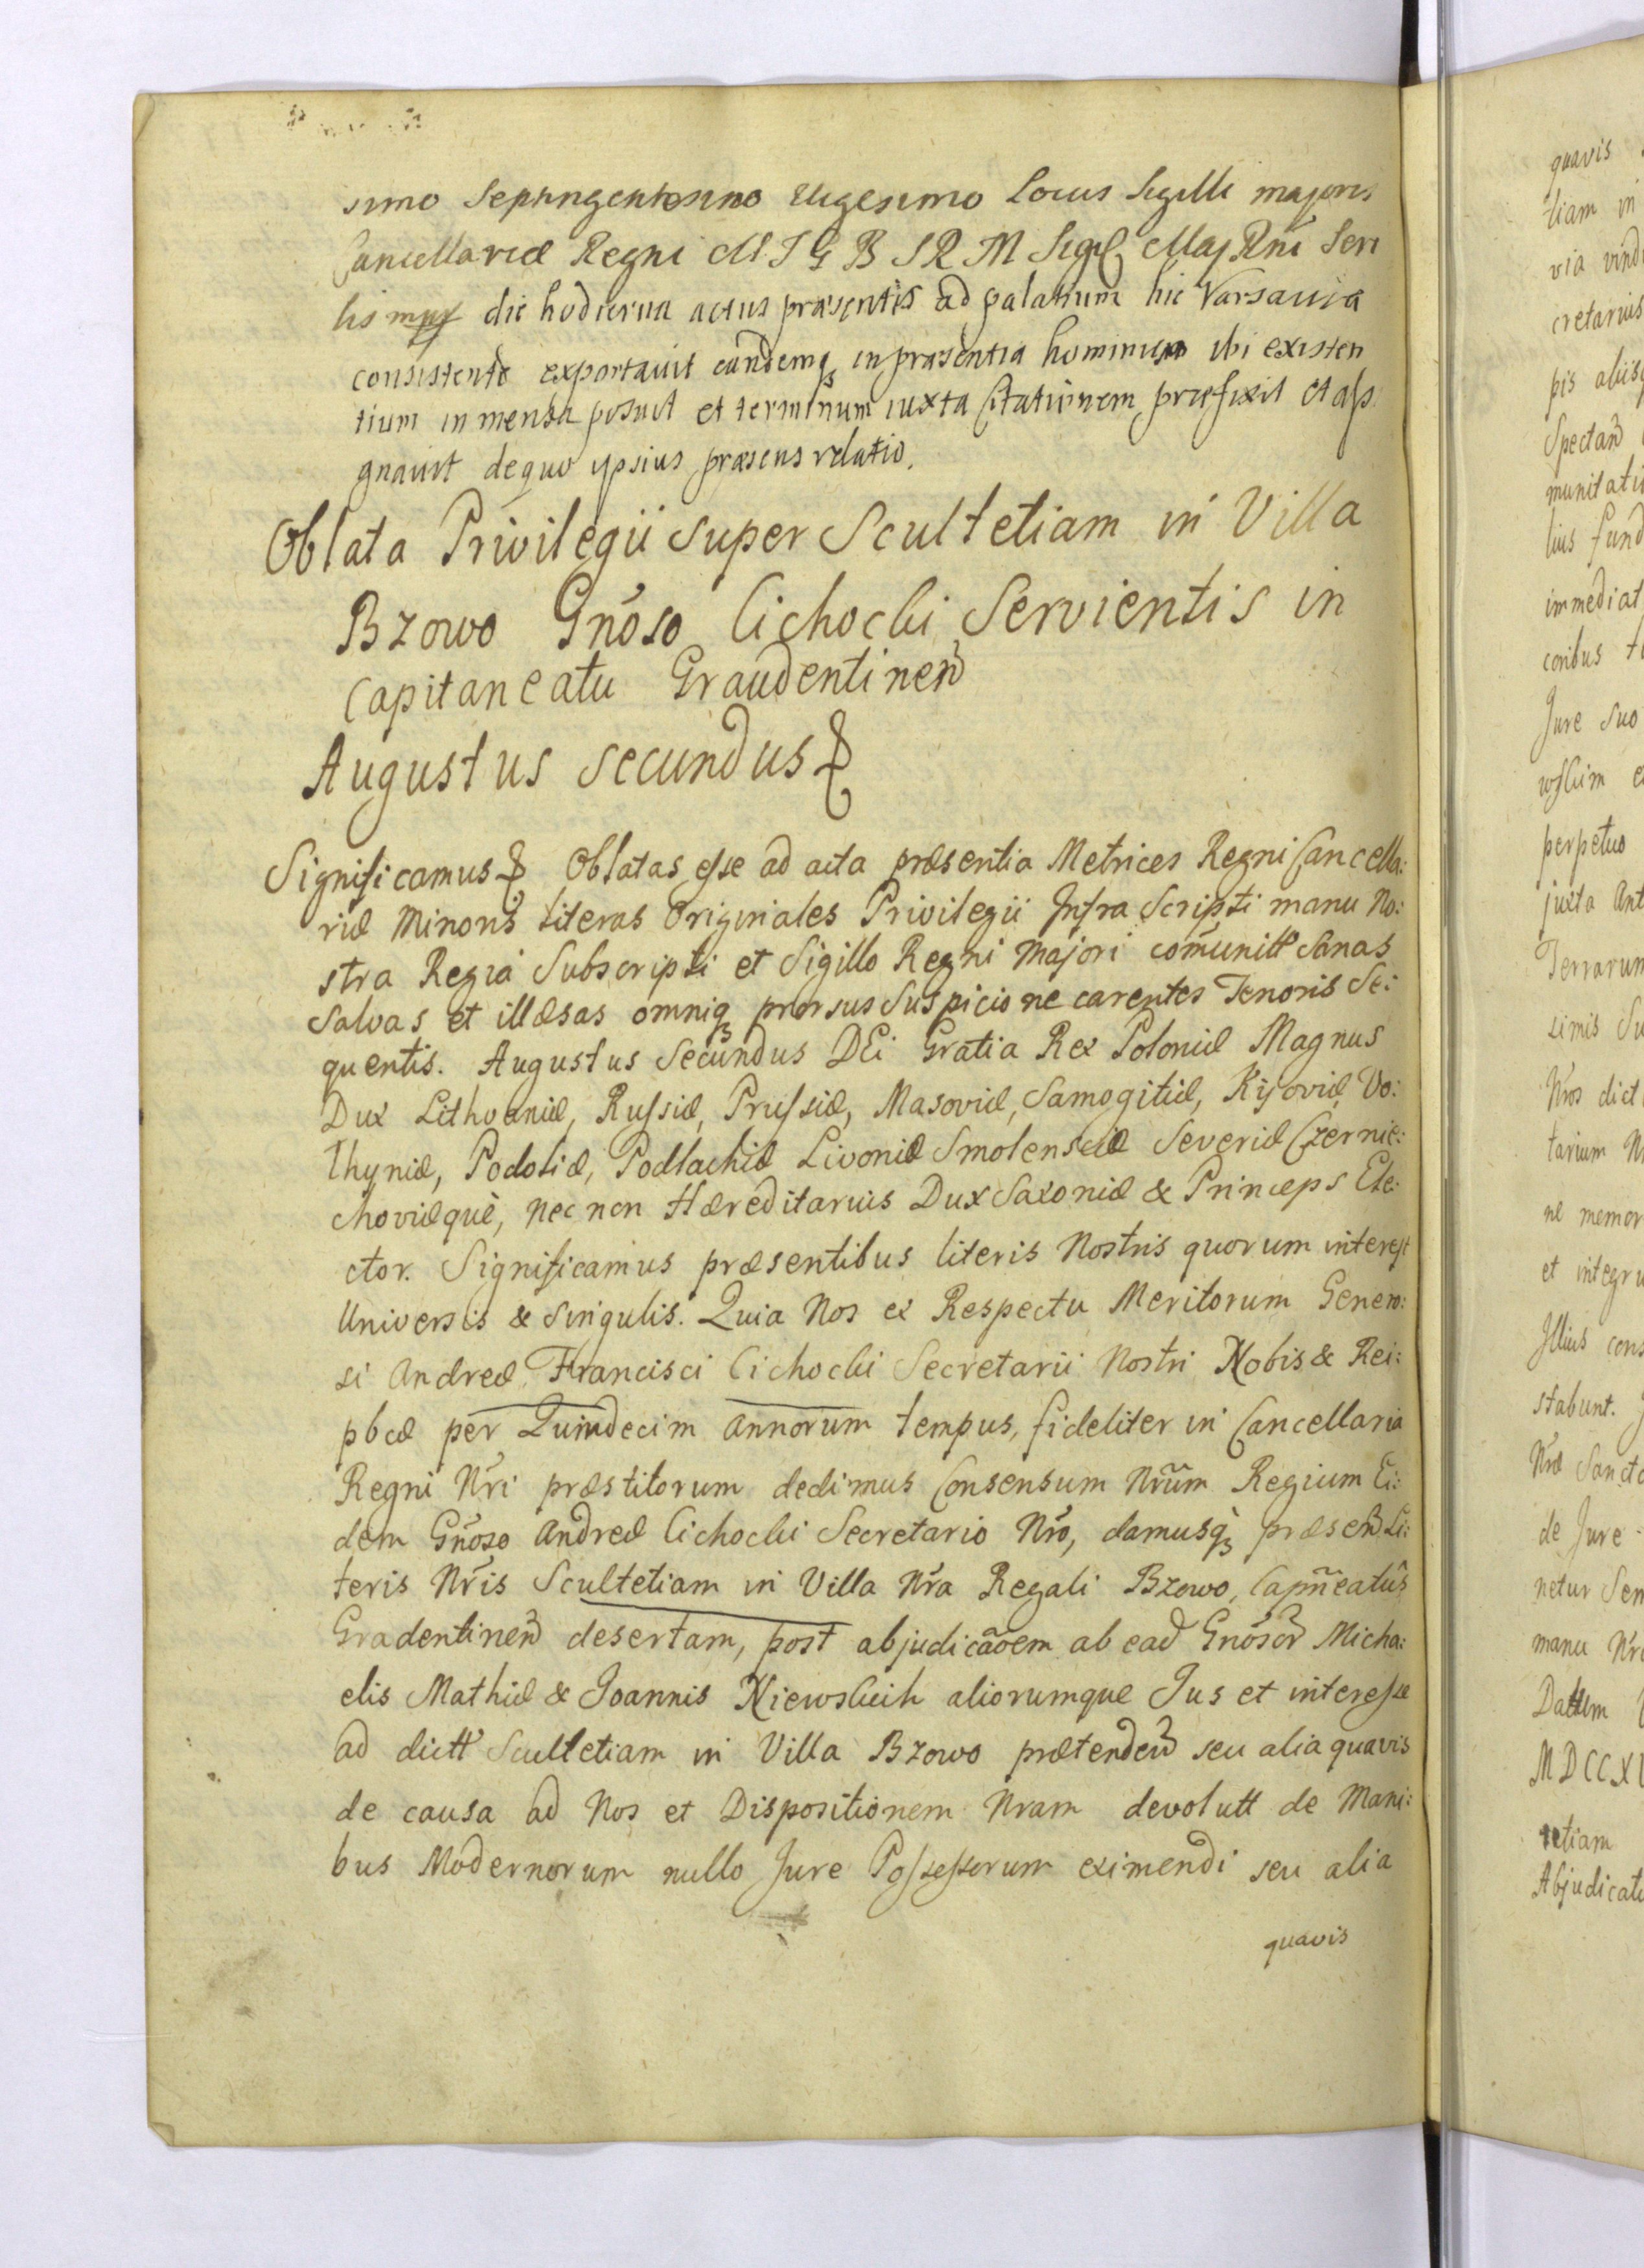 simo Septingentesimo Vigesimo Locus Sigilli majoris
Cancellariæ Regni M J G B S R M Sigil Maj Rni Seri
bis mpp die hodierna actus præsentis ad palatium hic Varsaviæ
consistente exportavit eandemq in præsentia hominum ibi existen
tium in mensa posuit et terminum iuxta Citationem præfixit et assi
gnavit de quo ipsius præsens relatio.
Oblata Privilegii super Scultetiam in Villa
Bzowo Gnõso Cichocki Servientis in
Capitaneatu Graudentineñ
Augustus Secundus &
Significamus & Oblatas esse ad acta præsentia Metrices Regni Cancella:
riæ Minoris literas Originales Privilegii Infra Scripti manu No:
stra Regia Subscripti et Sigillo Regni Majori com̃unitt Sanas
Salvas et illæsas omniq prorsus Suspicione carentes Tenoris Se:
quentis. Augustus Secundus DEi Gratia Rex Poloniæ Magnus
Dux Lithvaniæ, Russiæ, Prussiæ, Masoviæ, Samogitiæ, Kijoviæ, Vo:
lhyniæ, Podoliæ, Podlachiæ Livoniæ Smolensciæ Severiæ Czernie:
choviæquè, nec non Hæreditarius Dux Saxoniæ & Princeps Ele:
ctor. Significamus præsentibus literis Nostris quorum interest
Universis & singulis. Quia Nos ex Respectu Meritorum Genero:
si Andreæ Francisci Cichocki Secretarii Nostri Nobis & Rei:
pbcæ per Quindecim annorum tempus, fideliter in Cancellaria
Regni Nr̃i præstitorum dedimus Consensum Nrũm Regium Ei:
dem Gnõso Andreæ Cichocki Secretario Nr̃o, damusq̀ præseñ Li:
teris Nr̃is Scultetiam in Villa Nr̃a Regali Bzowo, Capñeatûs
Gradentineñ desertam, post abjudicãoem ab ead Gnõsor Micha:
elis Mathiæ & Joannis Niewskich aliorumque Jus et interesse
ad dictt Scultetiam in Villa Bzowo prætendeñ seu alia quavis
de causa ad Nos et Dispositionem Nram devolutt de Mani:
bus Modernorum nullo Jure Possessorum eximendi seu alia
quavis
quavis
tiam in
via vind
cretarius
pis aliis
Spectañ
munitati
lius fund
immediat
Jure suo
perpetuo
juxta Ant
Terrarum
simis Su
Nr̃os dict
tarium N
ne memor
et integru
Illius cons
stabunt.
Nr̃æ Sancto
de Jure
netur Sen
manu Nr̃
Dattum
MDCCX
tetiam
Abjudicat